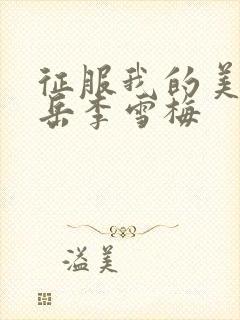 征服我的美
岳李雪梅
溢美